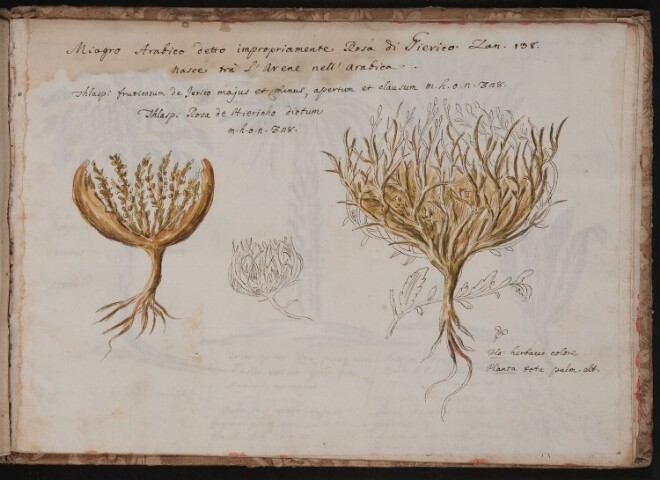 Miagro Arabico detto impropriamente Rosa di Gierico. Zan. 138.
nasce trà l'Arene nell'Arabica.
Thlaspi fruticosum de Jerico majus et minus, apertum et clausum m.h.o.n.
Thlaspi Rosa de Hiericho dictum
m.h.o.n.
herbaceo colore
Planta tota palm. alt.